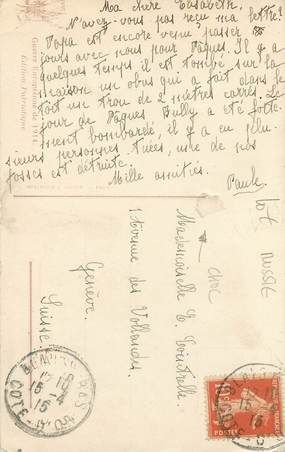 Ma chère Elisabeth.
N'avez-vous pas reçu ma lettre?
Papa est encore venu passer 8
jours avec nous pour Pâques. Il y a
quelques temps il est tombé sur la
maison un obus qui a fait dans le
toit un trou de 2 mètres carrés. Le
jour de Pâques Bully a été forte-
ment bombardé, il y a eu plu-
sieurs personnes tuées, une de nos
fosses est détruite.
Mille amitiés.
Paule
Guerre Européenne de 1914
Edition Patriotique
Mademoiselle E.
1 Avenue des Vollandes.
Genève.
Suisse.
RUSSIE
15-4
15
CÔTE D'OR
POSTES